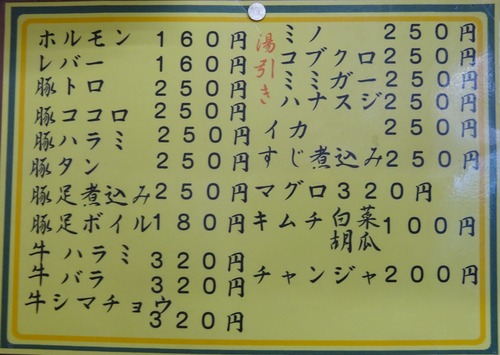 ホルモン 160円
レバー 160円
豚トロ 250円
豚ココロ 250円
豚ハラミ 250円
豚タン 250円
豚足煮込み 250円
豚足ボイル 180円
牛ハラミ 320円
牛バラ 320円
牛シマチョウ 320円
湯引き
ミノ 250円
コブクロ 250円
ミミガー 250円
ハナスジ 250円
イカ 250円
すじ煮込み 250円
マグロ 320円
キムチ 白菜 胡瓜 100円
チャンジャ 200円